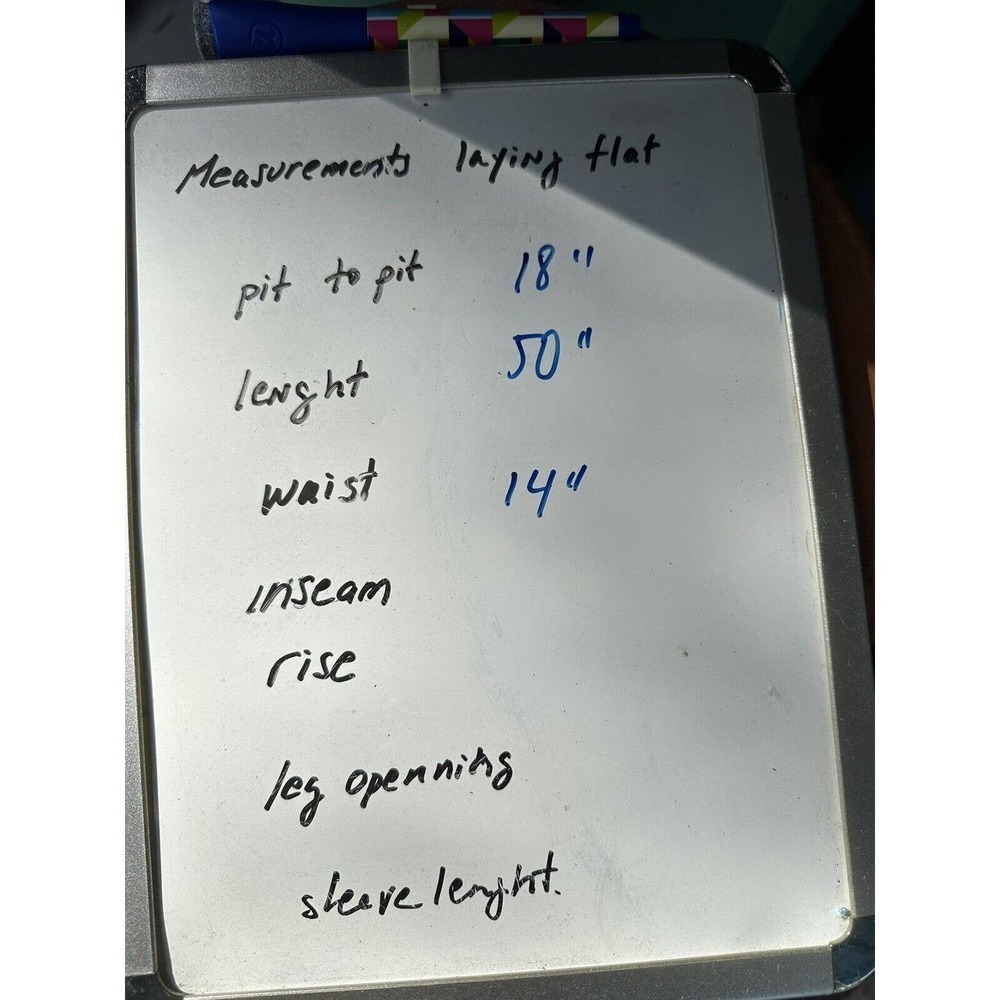 Measurements laying flat
pit to pit 18"
lenght 50"
waist 14"
inseam
rise
leg openning
sleeve lenght.